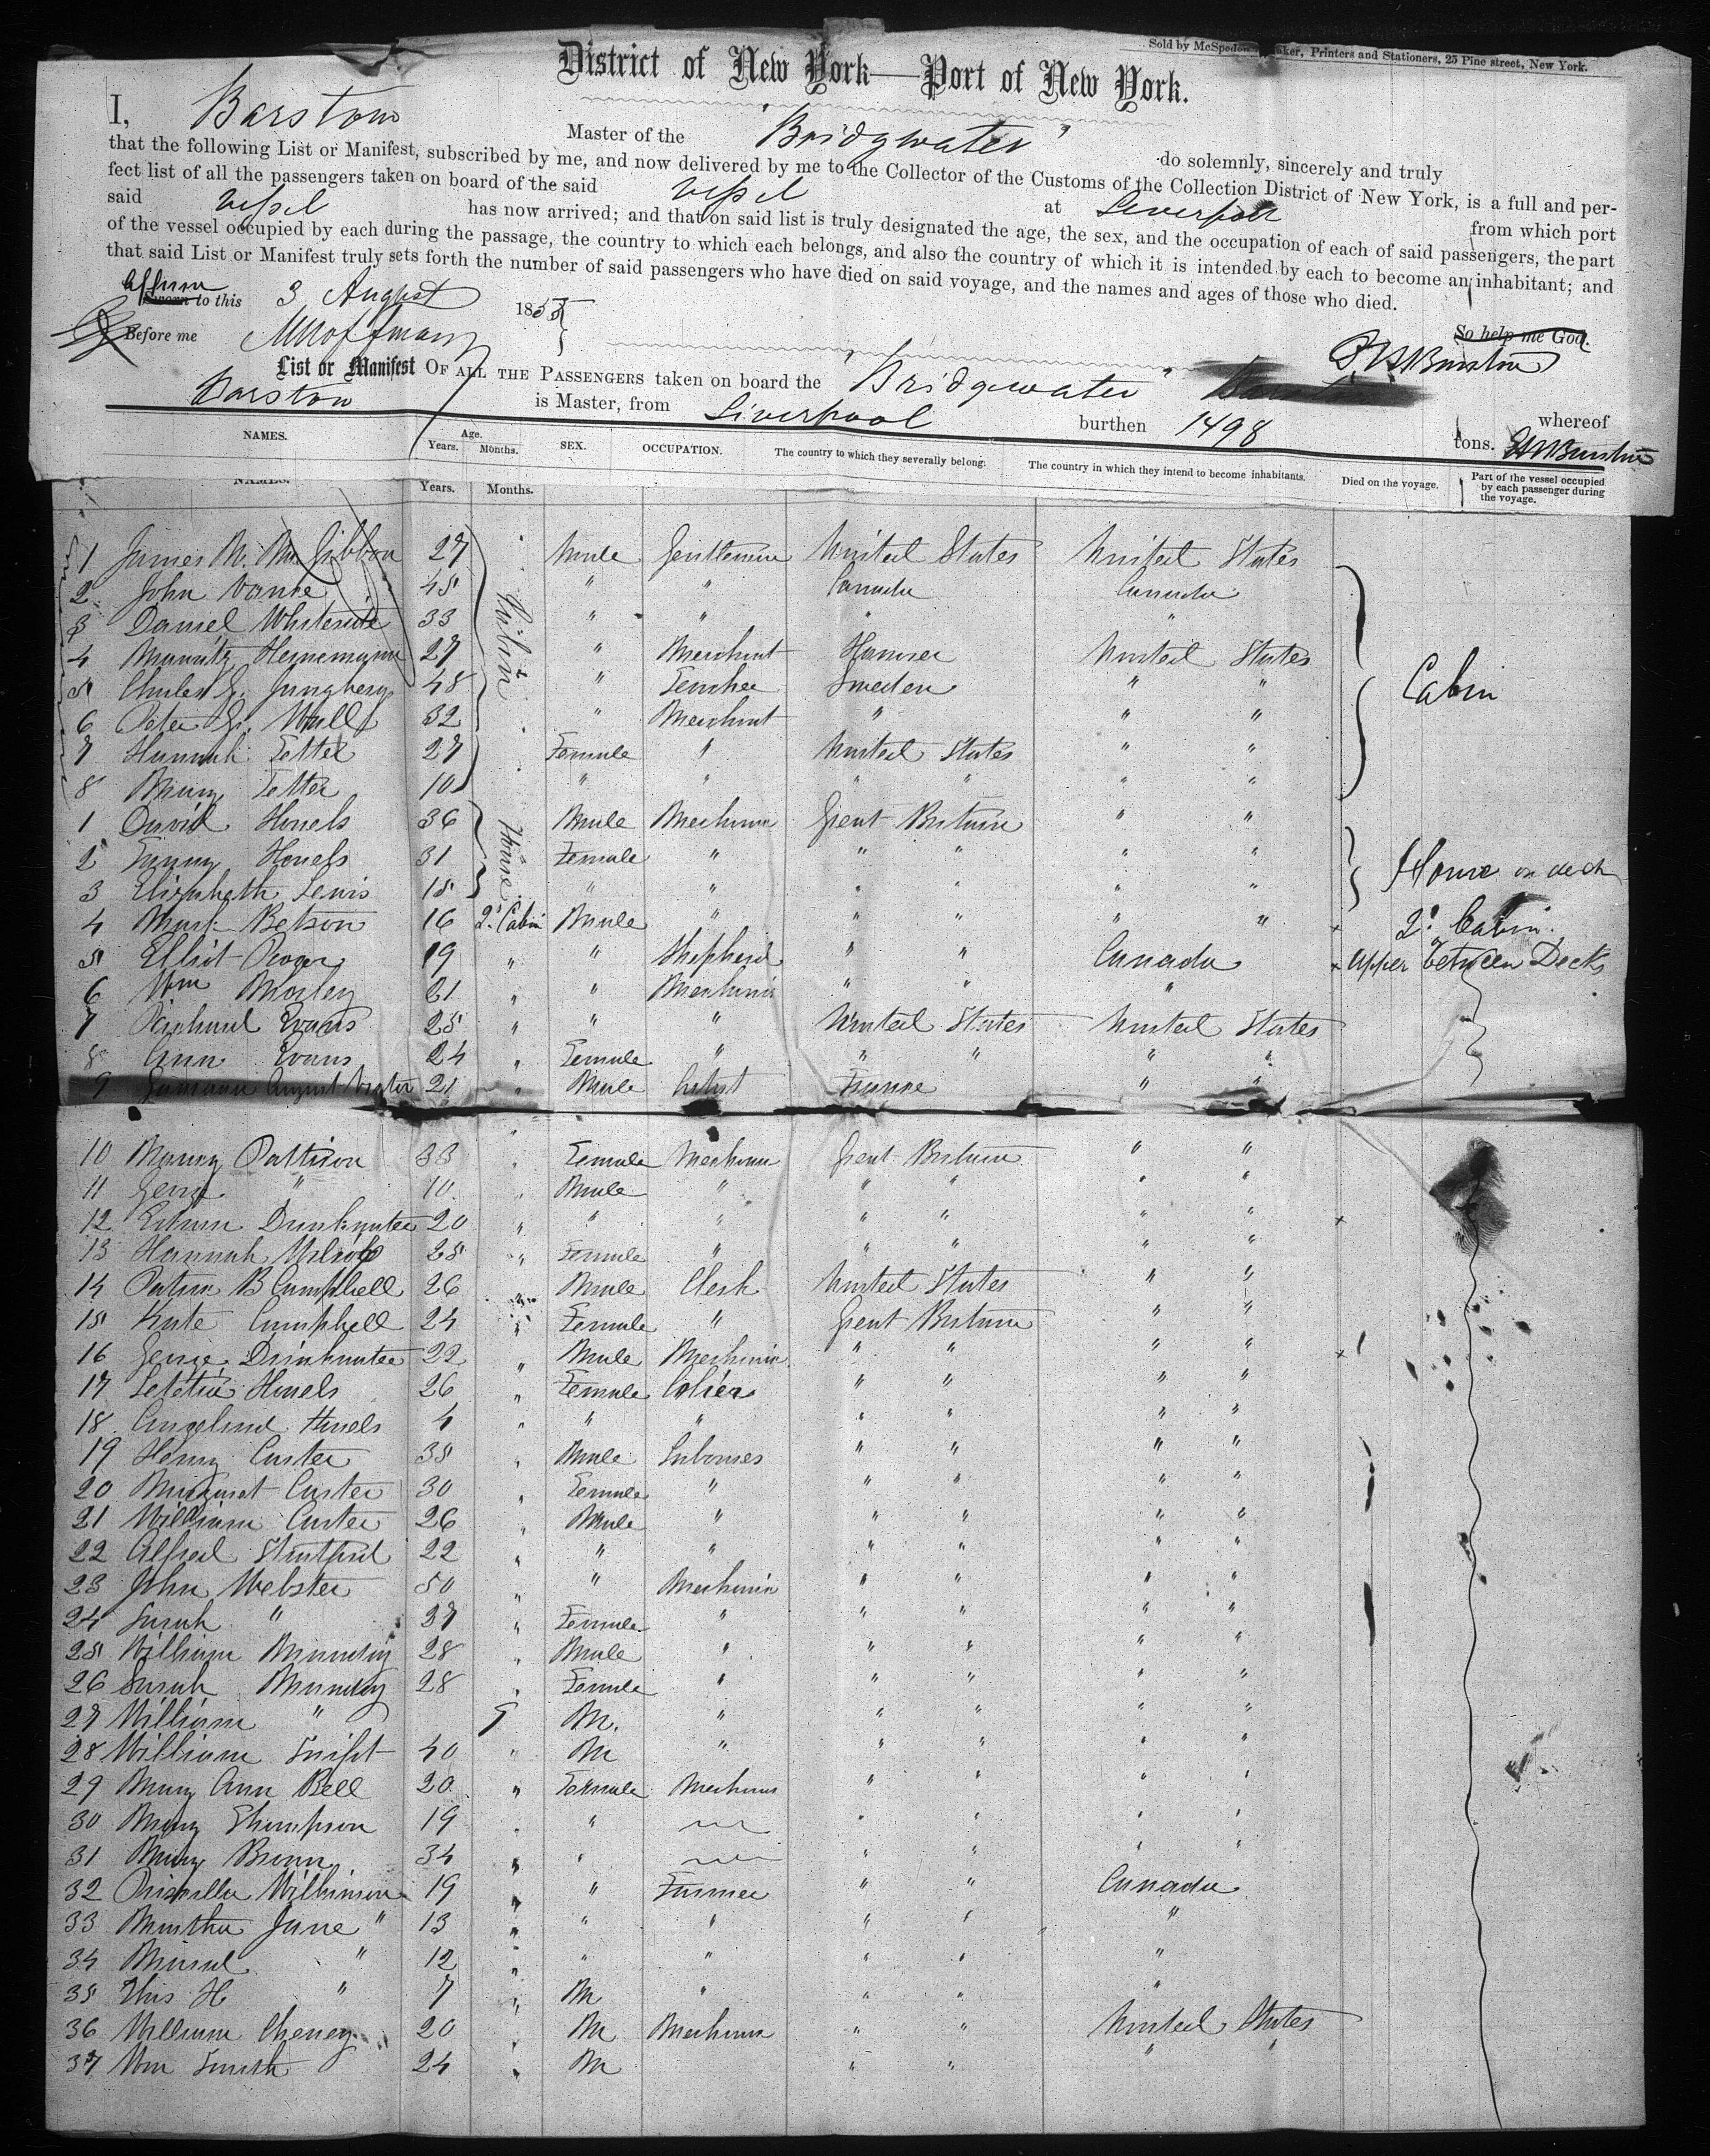 Sold by McSpedon Baker, Printers and Stationers, 25 Pine street, New York.
District of New York—Port of New York.
I, Barstow Master of the "Bridgwater" do solemnly, sincerely and truly
that the following List or Manifest, subscribed by me, and now delivered by me to the Collector of the Customs of the Collection District of New York, is a full and per-
fect list of all the passengers taken on board of the said vessel at Liverpool from which port
said vessel has now arrived; and that on said list is truly designated the age, the sex, and the occupation of each of said passengers, the part
of the vessel occupied by each during the passage, the country to which each belongs, and also the country of which it is intended by each to become an inhabitant; and
that said List or Manifest truly sets forth the number of said passengers who have died on said voyage, and the names and ages of those who died.
affirm
Sworn to this 3 August 185
So help me God.
Before me
List or Manifest OF ALL THE PASSENGERS taken on board the "Bridgewater" whereof
Barstow is Master, from Liverpool burthen 1498 tons.
NAMES. Age. Years. Months. SEX. OCCUPATION. The country to which they severally belong. The country in which they intend to become inhabitants. Died on the voyage. Part of the vessel occupied by each passenger during the voyage.
NAMES. Years. Months.
1 James M. Gibbon 27 Male Gentleman United States United States
2 John Vance 45 " " Canada Canada
3 Daniel Whiteside 33 " " " "
4 Heinemann 27 " Merchant United States
5 Charles 48 " Sweden " "
6 Peter 32 " Merchant " " "
7 Hannah Tetter 27 Female " United States " "
8 Mary Tetter 10 " " " " " "
Cabin
Cabin
1 David Howels 36 Male Mechanic Great Britain " "
2 Fanny Howels 31 Female " " " " "
3 Elizabeth Lewis 18 " " " " " "
House
House on deck
4 Betson 16 2d Cabin Male " " " " " 2d Cabin.
5 Elliot 19 " " Shepherd " " Canada upper between Decks
6 Wm Morley 21 " " Mechanic " " "
7 Richard Evans 25 " " " United States United States
8 Ann Evans 24 " Female " " " " "
9 August 21 " Male Artist France " "
10 Pattison 33 " Female Mechanic Great Britain " "
11 George " 10 " Male " " " " "
12 Edwin Drinkwater 20 " " " " " " "
13 Hannah 25 " Female " " " " "
14 B Campbell 26 Male Clerk United States " "
15 Kate Campbell 24 " Female " Great Britain " "
16 George Drinkwater 22 " Male Mechanic " " " "
17 Letetia Howels 26 " Female Colier " " " "
18 Howels 4 " " " " " " "
19 Henry Carter 35 " Male " " " "
20 Margaret Carter 30 " Female " " " " "
21 William Carter 26 " Male " " " " "
22 Alfred 22 " " " " " " "
23 John Webster 50 " " Mechanic " " " "
24 Sarah " 37 " Female " " " " "
25 William 28 " Male " " " " "
26 Sarah 28 " Female " " " " "
27 William " 9 M. " " " " "
28 William 40 " M " " " " "
29 Mary Ann Bell 20 " Female Mechanic " " " "
30 Mary 19 " " " " " "
31 Mary 34 " " " " " "
32 Priscilla Wilkinson 19 " " Farmer " " Canada
33 Martha Jane " 13 " " " " " "
34 " 12 " " " " " "
35 H " 7 " M " " " "
36 William Cheney 20 " M Mechanic " " United States
37 Wm Smith 24 " M " " " "